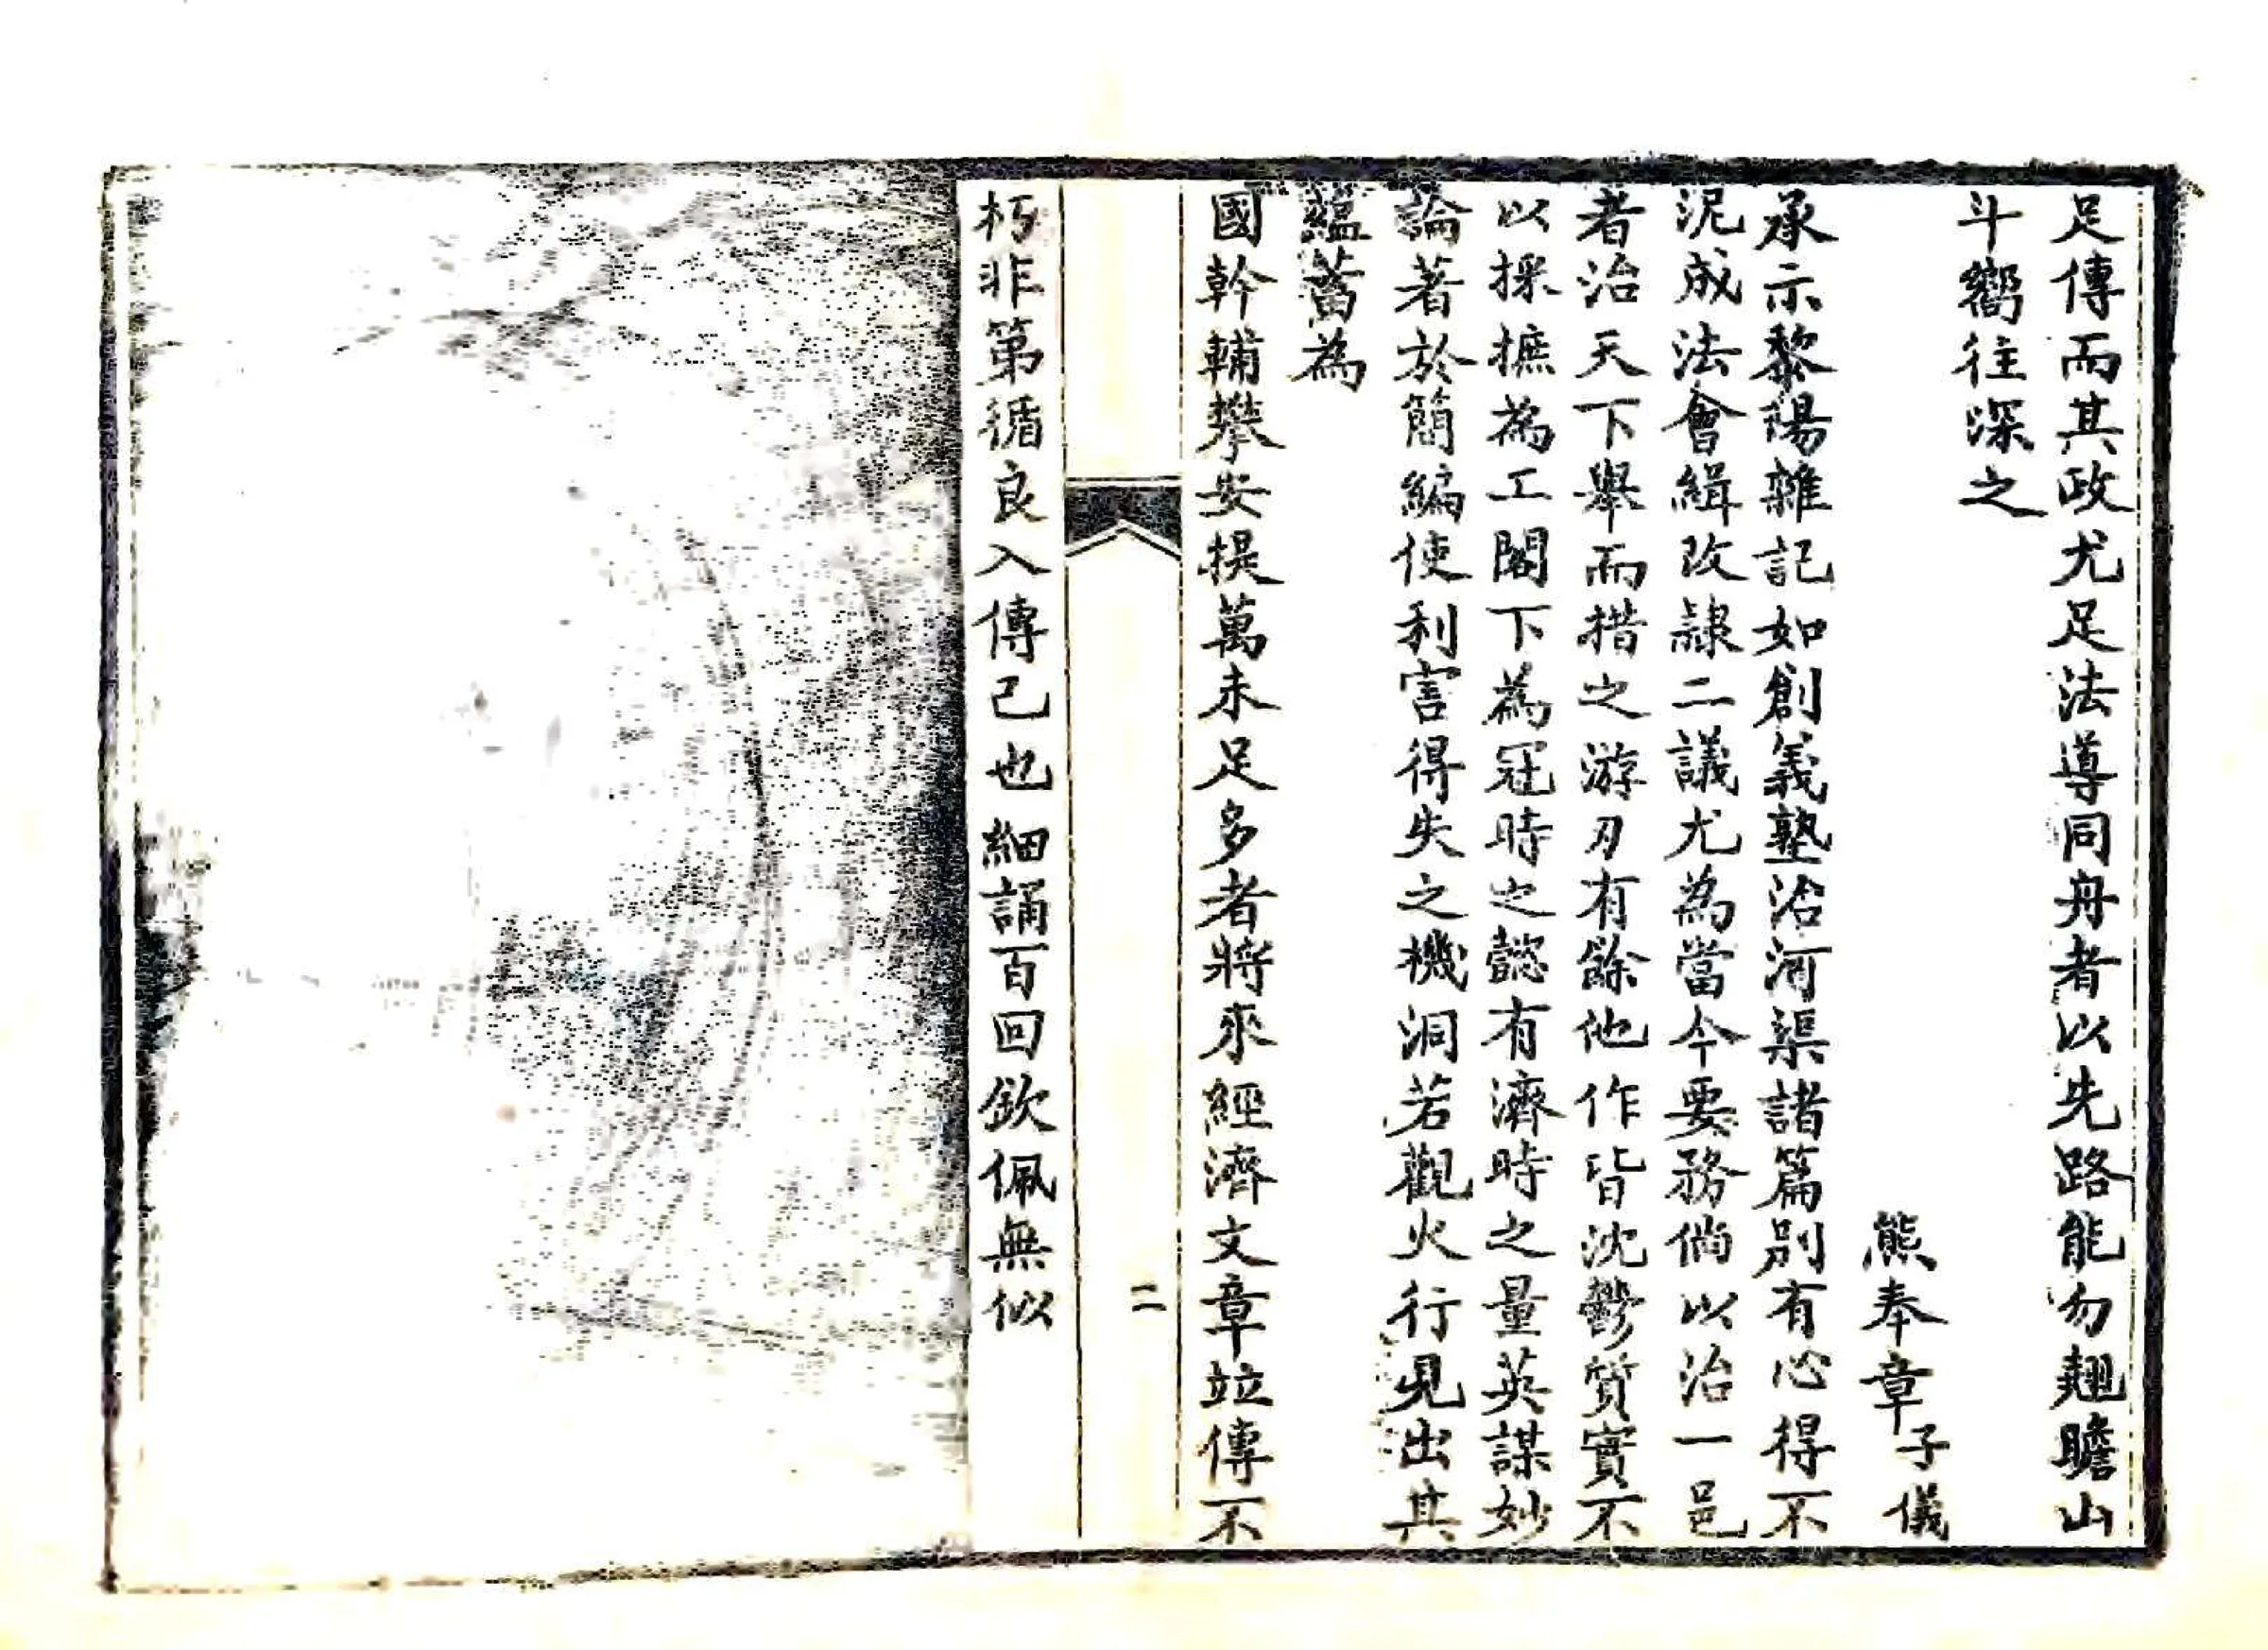 足傳而其政尤足法導同舟者以先路能勿翹瞻山
斗嚮往深之
熊奉章子儀
承示黎陽雜記如創義塾治河渠諸篇別有心得不
泥成法會緝改隸二議尤為當今要務倘以治一邑
者治天下舉而措之游刃有餘他作皆沈鬱質實不
以採摭為工閣下為冠時之懿有濟時之量英謀妙
論著於簡編使利害得失之機洞若觀火行見出其
蘊蓄為
國幹輔攀安提萬未足多者將來經濟文章竝傳不
二
朽非第循良入傳已也細誦百回欽佩無似